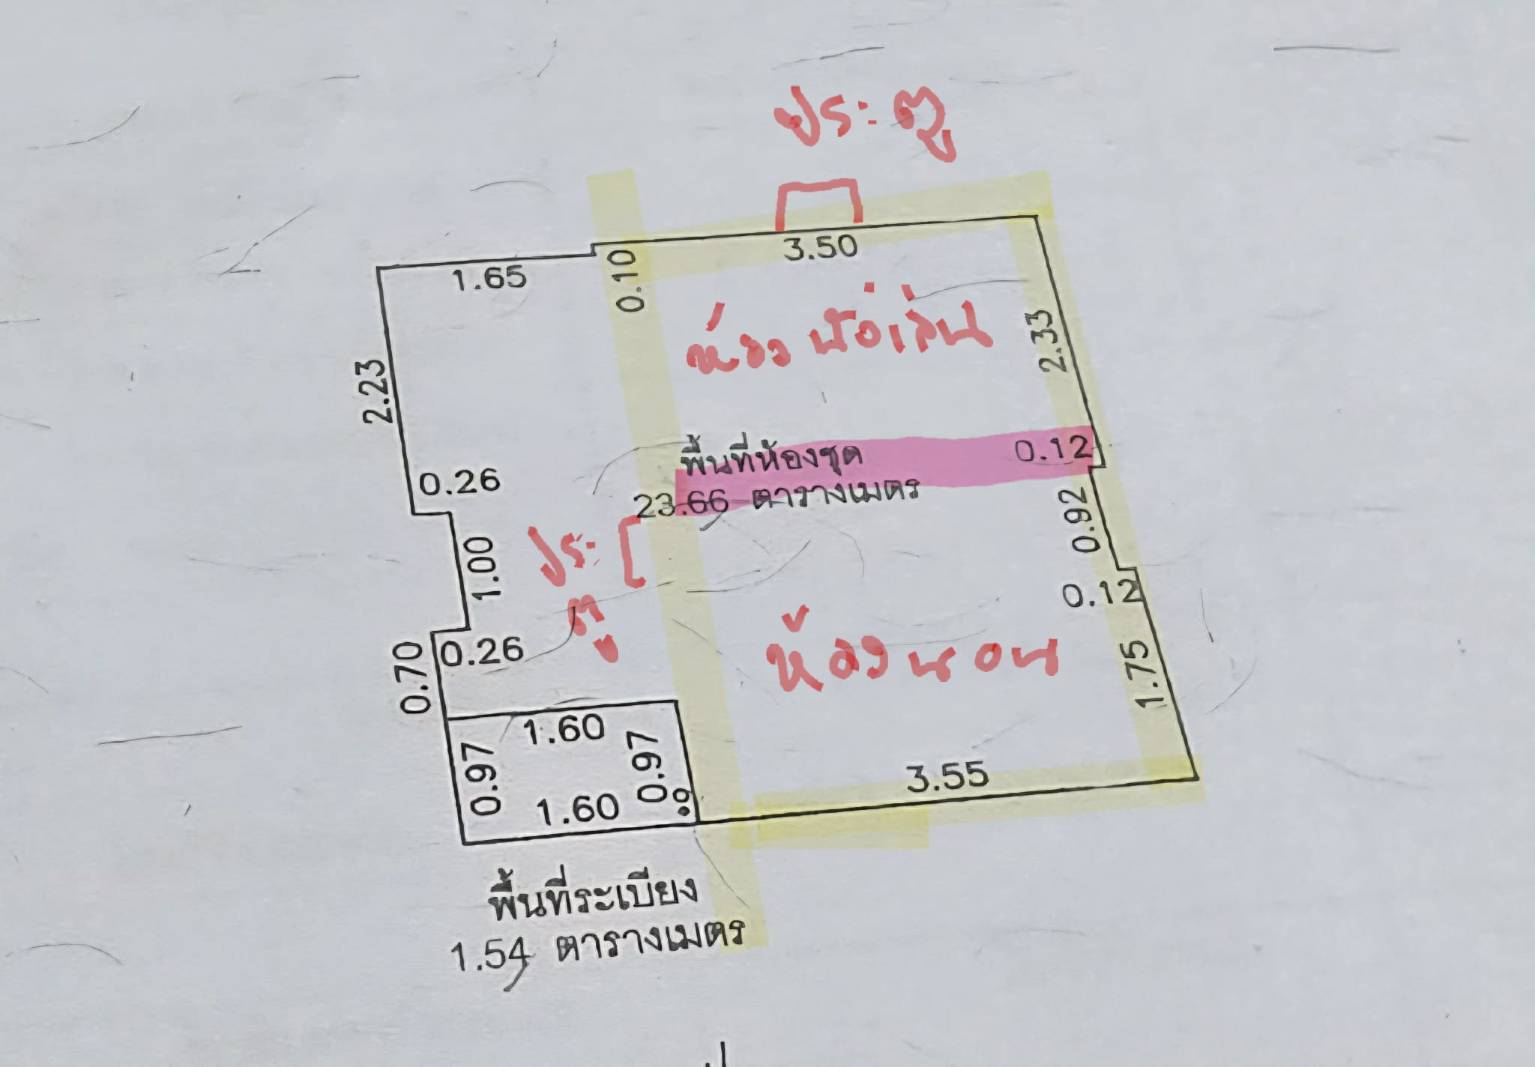 ประตู
3.50
1.65
0.10
ห้องนั่งเล่น
2.33
2.23
พื้นที่ห้องชุด
0.12
0.26
23.66 ตารางเมตร
0.92
ประ
ตู
1.00
0.12
0.26
0.70
ห้องนอน
1.75
1.60
0.97
0.97
3.55
1.60
พื้นที่ระเบียง
1.54 ตารางเมตร